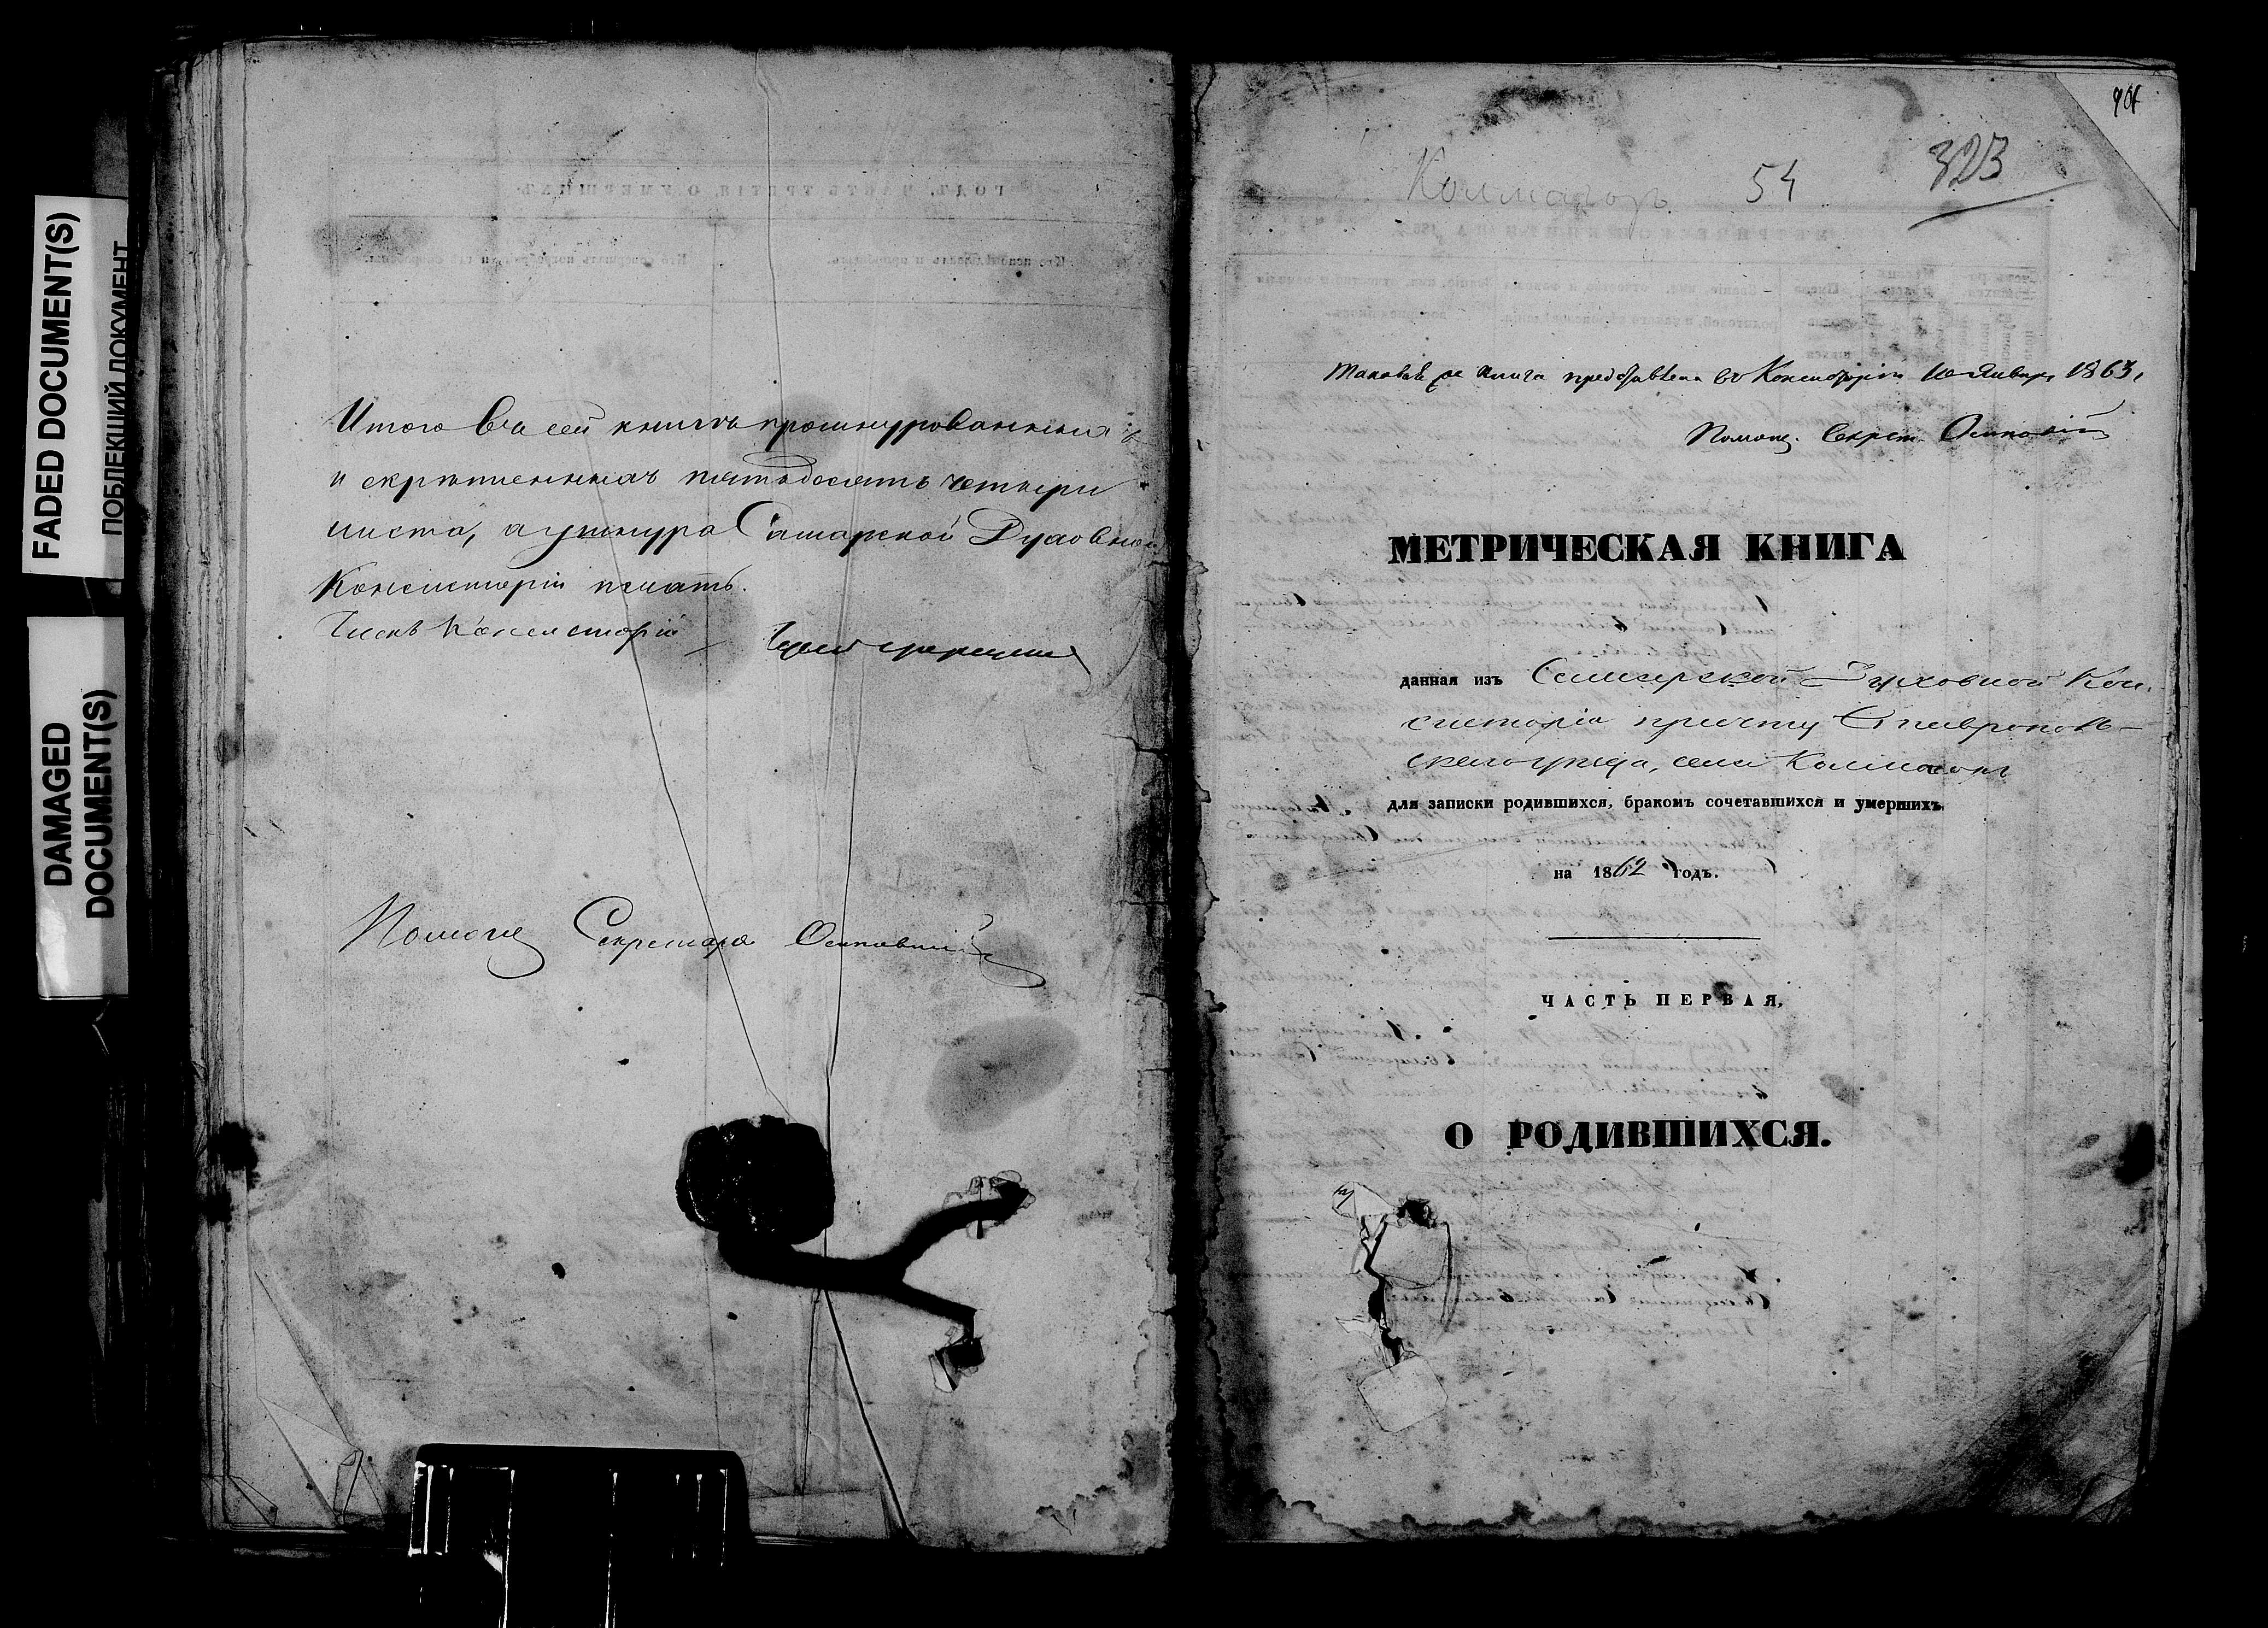 FADED DOCUMENT(S)
ПОБЛЕКШИЙ ДОКУМЕНТ
DAMAGED
DOCUMENT(S)
Итого въ сей книгѣ прошнурованныхъ
и скрѣпленныхъ пятьдесятъ четыре
листа, а у шнура Самарской Духовной
Консисторіи печать.
Членъ Консисторіи
Помощ Секретаря Осиповскій
54
323
Таковая же книга представлена въ Консисторію 10 Января 1863,
Помощ. Секрет. Осиповскій
МЕТРИЧЕСКАЯ КНИГА
данная изъ Самарской Духовной Кон-
систоріи причту Ставрополь-
скаго уѣзда, села
для записки родившихся, бракомъ сочетавшихся и умершихъ
на 1862 годъ.
ЧАСТЬ ПЕРВАЯ,
О РОДИВШИХСЯ.